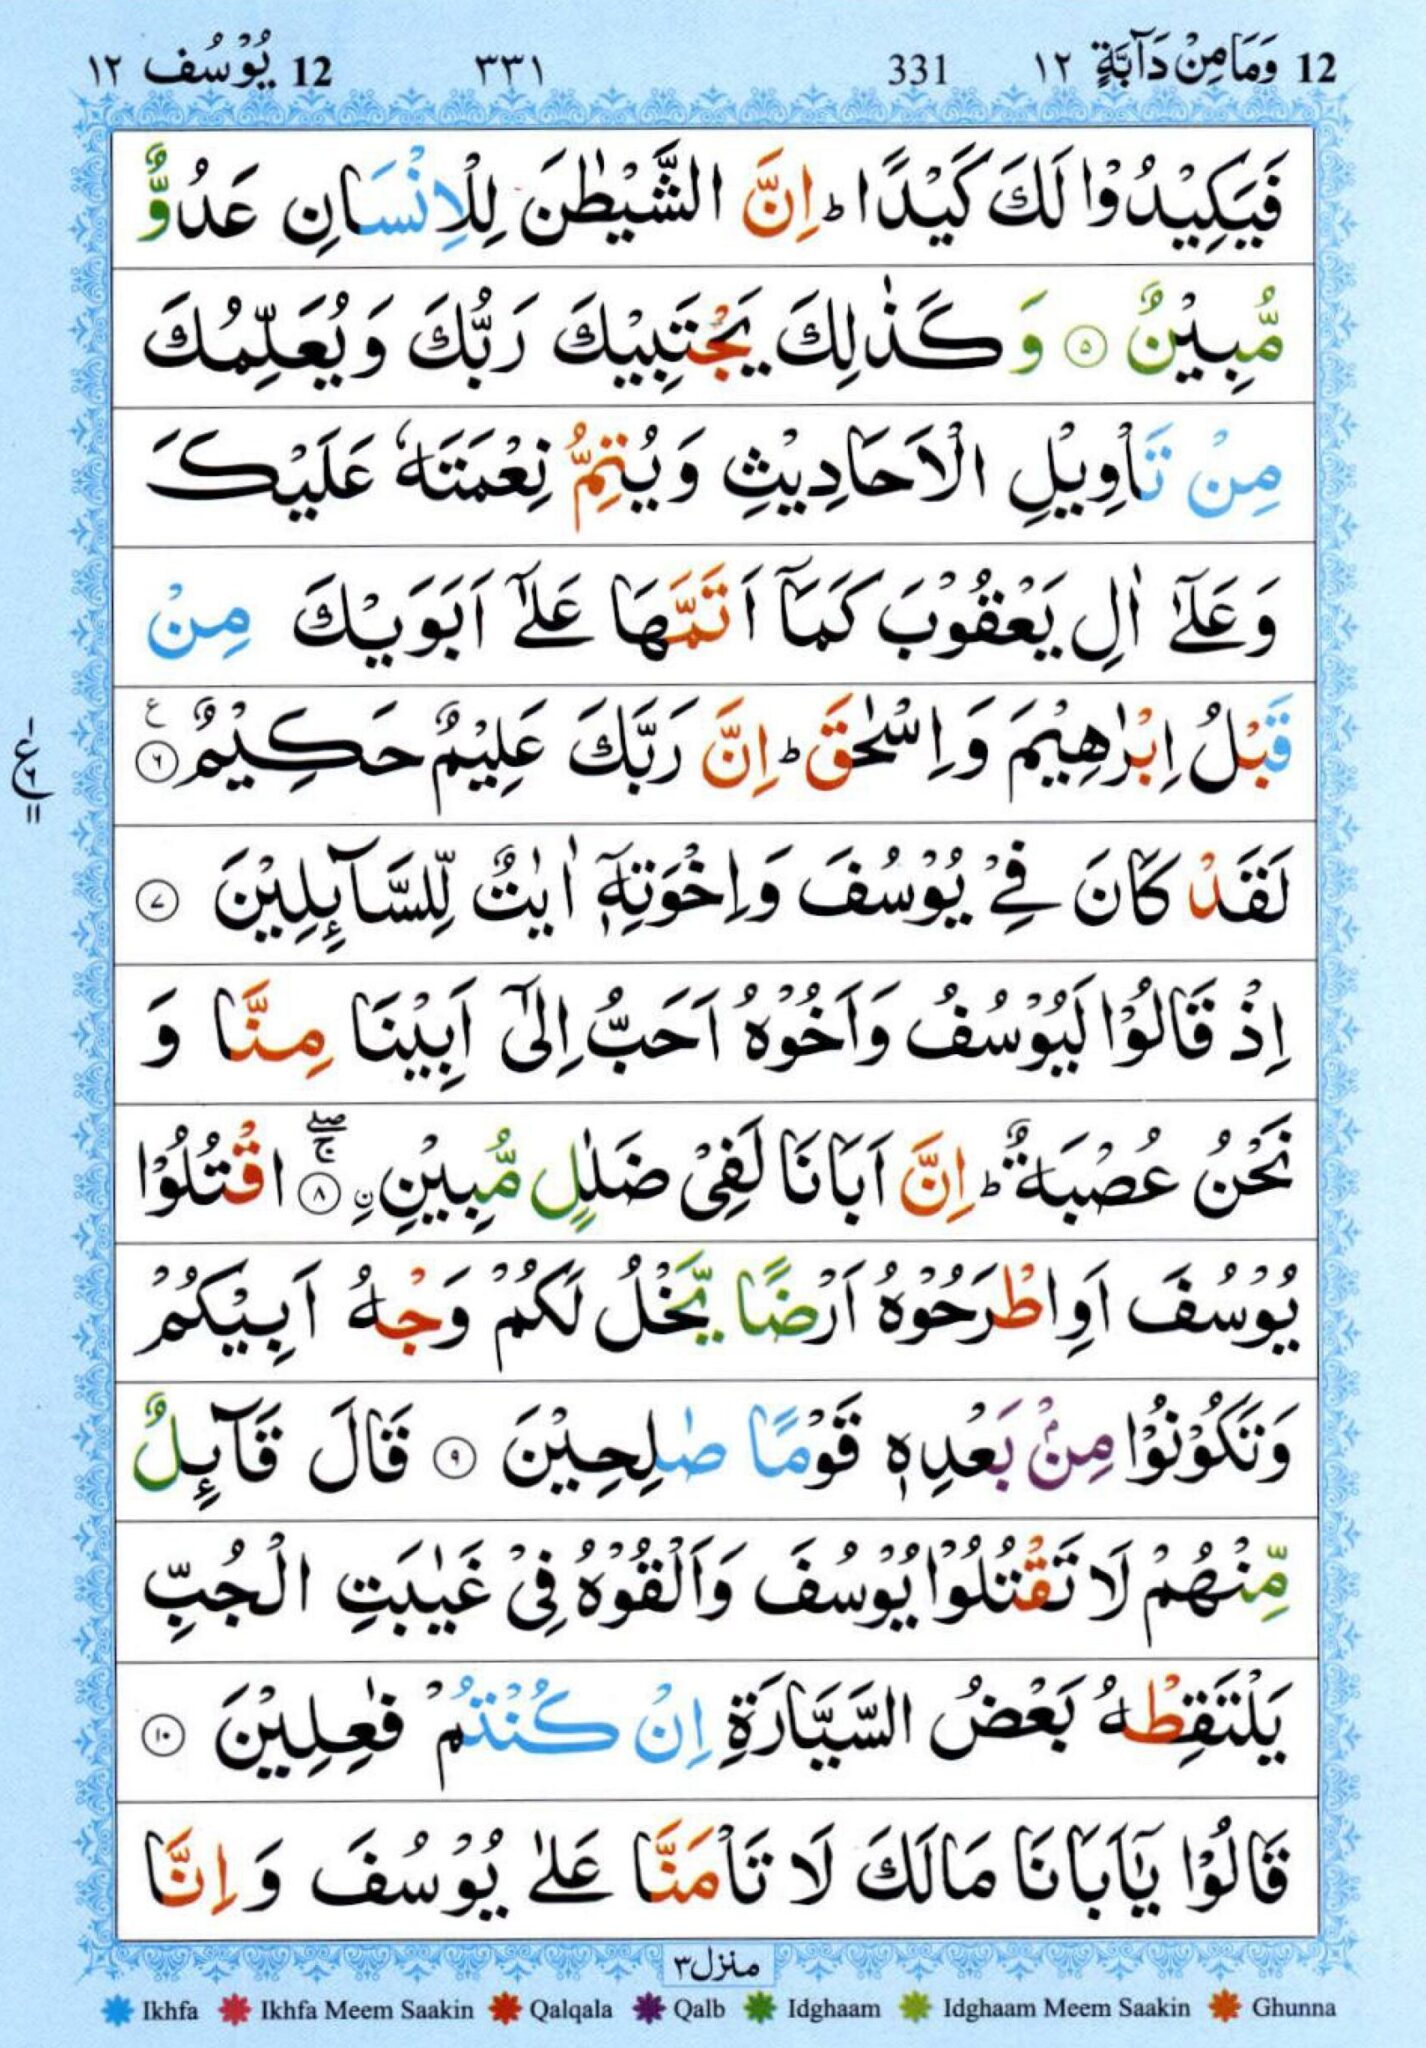 12 وَمَا مِنْ دَآبَّةٍ ١٢ 331 ٣٣١ 12 يُوْسُف ١٢
فَيَكِيْدُوْا لَكَ كَيْدًا ؕ اِنَّ الشَّيْطٰنَ لِلْاِنْسَانِ عَدُوٌّ
مُّبِيْنٌ ۝٥ وَ كَذٰلِكَ يَجْتَبِيْكَ رَبُّكَ وَيُعَلِّمُكَ
مِنْ تَاْوِيْلِ الْاَحَادِيْثِ وَيُتِمُّ نِعْمَتَهٗ عَلَيْكَ
وَعَلٰٓى اٰلِ يَعْقُوْبَ كَمَاۤ اَتَمَّهَا عَلٰٓى اَبَوَيْكَ مِنْ
قَبْلُ اِبْرٰهِيْمَ وَاِسْحٰقَ ؕ اِنَّ رَبَّكَ عَلِيْمٌ حَكِيْمٌ ۝٦ ع
لَقَدْ كَانَ فِيْ يُوْسُفَ وَاِخْوَتِهٖۤ اٰيٰتٌ لِّلسَّآئِلِيْنَ ۝٧
اِذْ قَالُوْا لَيُوْسُفُ وَاَخُوْهُ اَحَبُّ اِلٰٓى اَبِيْنَا مِنَّا وَ
نَحْنُ عُصْبَةٌ ؕ اِنَّ اَبَانَا لَفِيْ ضَلٰلٍ مُّبِيْنِ ۝٨ اقْتُلُوْا
يُوْسُفَ اَوِاطْرَحُوْهُ اَرْضًا يَّخْلُ لَكُمْ وَجْهُ اَبِيْكُمْ
وَتَكُوْنُوْا مِنْۢ بَعْدِهٖ قَوْمًا صٰلِحِيْنَ ۝٩ قَالَ قَآئِلٌ
مِّنْهُمْ لَا تَقْتُلُوْا يُوْسُفَ وَاَلْقُوْهُ فِيْ غَيٰبَتِ الْجُبِّ
يَلْتَقِطْهُ بَعْضُ السَّيَّارَةِ اِنْ كُنْتُمْ فٰعِلِيْنَ ۝١٠
قَالُوْا يٰۤاَبَانَا مَالَكَ لَا تَاْمَنَّا عَلٰى يُوْسُفَ وَاِنَّا
منزل ٣
Ikhfa Ikhfa Meem Saakin Qalqala Qalb Idghaam Idghaam Meem Saakin Ghunna